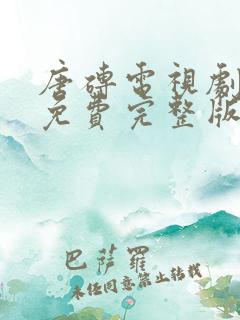 唐磚電視劇
免費完整版
巴薩羅
未經同意禁止轉載